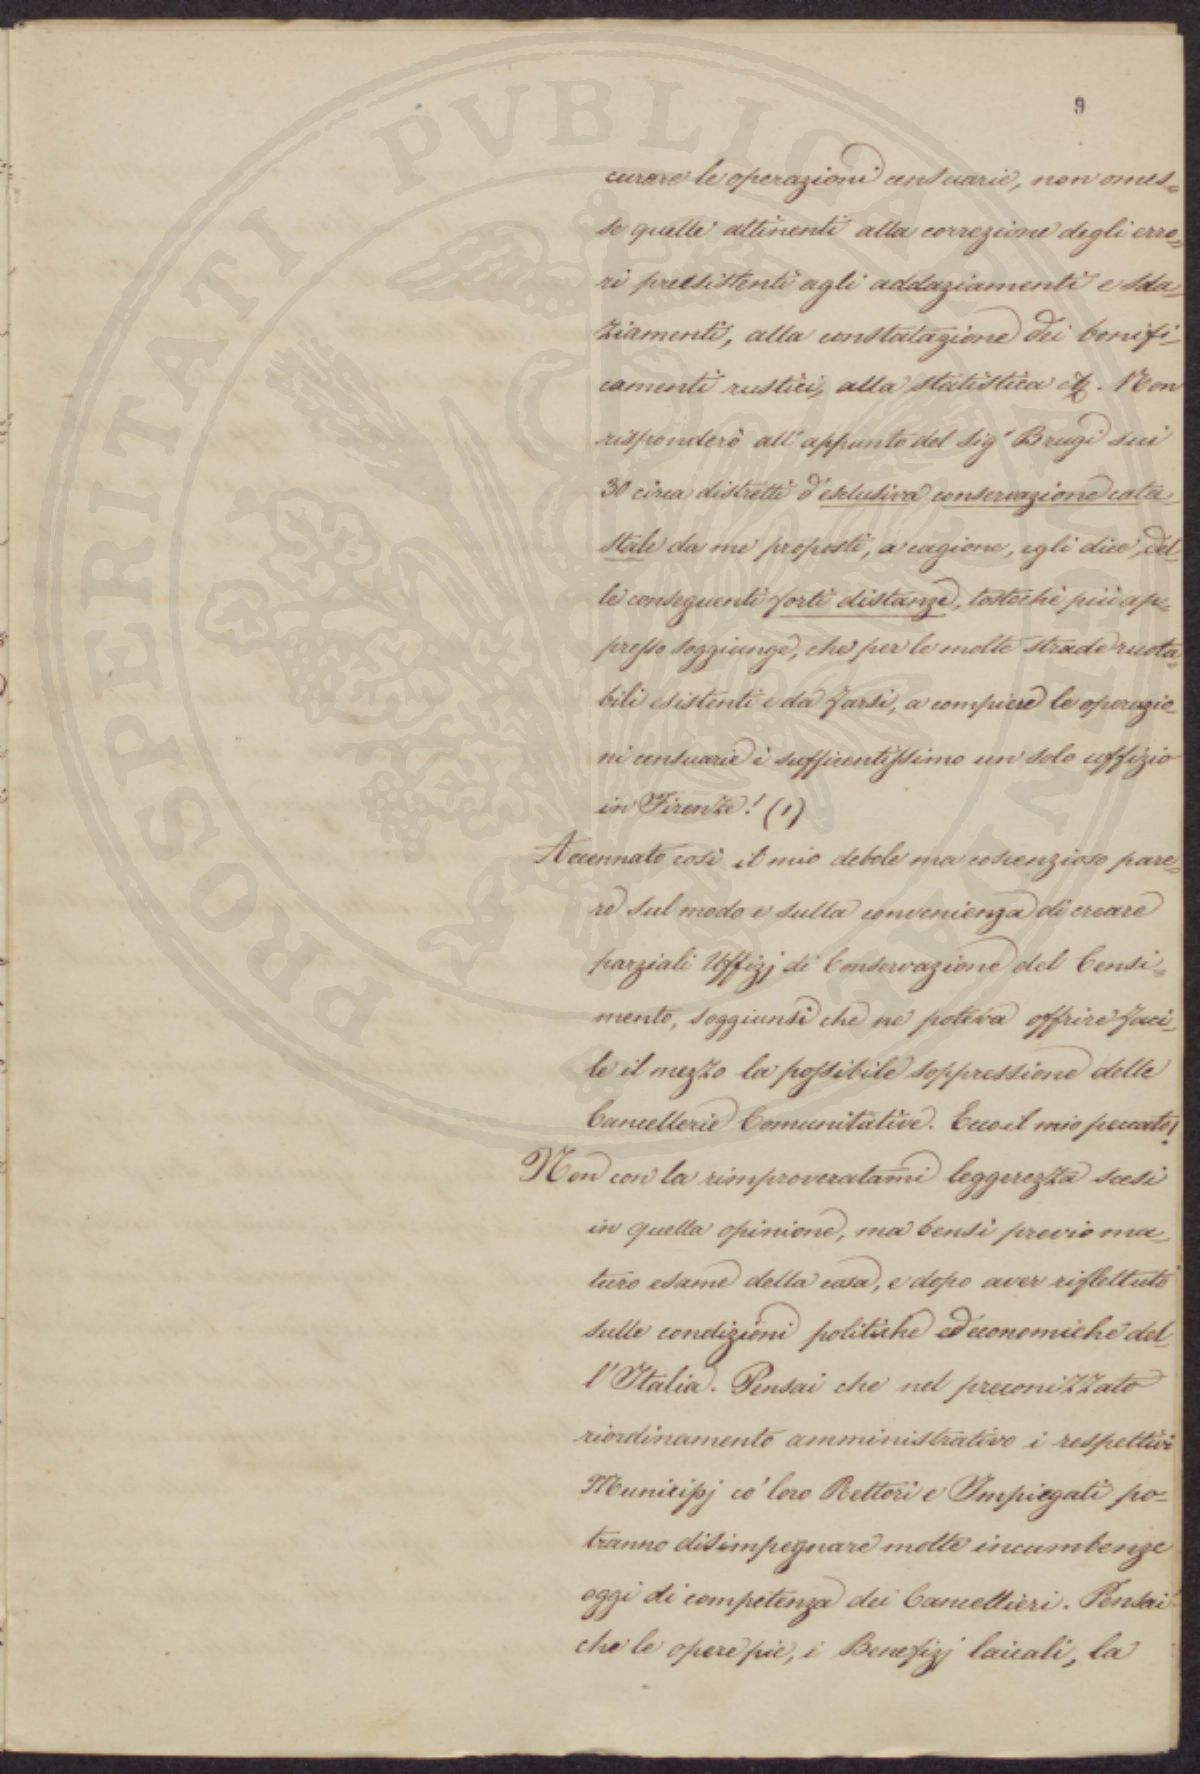 9
curare le operazioni censuarie, non omes=
se quelle attinenti alla correzione degli erro=
ri preesistenti agli addaziamenti e sda-
ziamenti, alla constatazione dei bonifi-
camenti rustici, alla statistica etc. Non
risponderò all'appunto del Sigr Brugi sui
30 circa distretti d'esclusiva conservazione cata-
stale da me proposti, a cagione, egli dice, del-
le conseguenti forti distanze, tostochè più ap=
presso soggiunge, che per le molte strade ruota=
bili esistenti e da farsi, a compiere le operazio=
ni censuarie è sufficentissimo un solo uffizio
in Firenze! (1)
Accennato così il mio debole ma coscenzioso pare=
re sul modo e sulla convenienza di creare
parziali Uffizj di Conservazione del Censi=
mento, soggiunsi che ne poteva offrire faci-
le il mezzo la possibile soppressione delle
Cancellerie Comunitative. Ecco il mio peccato!
Non con la rimproveratami leggerezza scesi
in quella opinione, ma bensì previo ma-
turo esame della cosa, e dopo aver riflettuto
sulle condizioni politiche ed economiche del-
l'Italia. Pensai che nel preconizzato
riordinamento amministrativo i respettivi
Municipj co' loro Rettori e Impiegati po-
tranno disimpegnare molte incumbenze
oggi di competenza dei Cancellieri. Pensai
che le opere pie, i Benefizj laicali, la
PROSPERITATI PVBLICAE